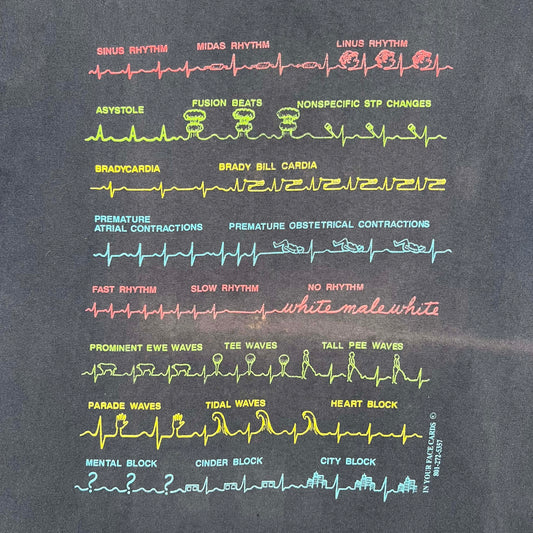 SINUS RHYTHM MIDAS RHYTHM LINUS RHYTHM
ASYSTOLE FUSION BEATS NONSPECIFIC STP CHANGES
BRADYCARDIA BRADY BILL CARDIA
PREMATURE
ATRIAL CONTRACTIONS PREMATURE OBSTETRICAL CONTRACTIONS
FAST RHYTHM SLOW RHYTHM NO RHYTHM
white male white
PROMINENT EWE WAVES TEE WAVES TALL PEE WAVES
PARADE WAVES TIDAL WAVES HEART BLOCK
MENTAL BLOCK CINDER BLOCK CITY BLOCK
? ? ?
IN YOUR FACE CARDS ©
801-272-5357